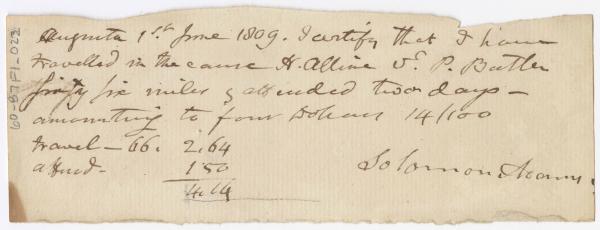 Augusta 1st June 1809. I certify that I have
travelled in the cause H. Alline Vs. P. Butler
sixty six miles & attended two days –
amounting to four Dollars 14/100
travel – 66. 2.64
attend – 1.50
4.14
Solomon Adams
60-87F1-022